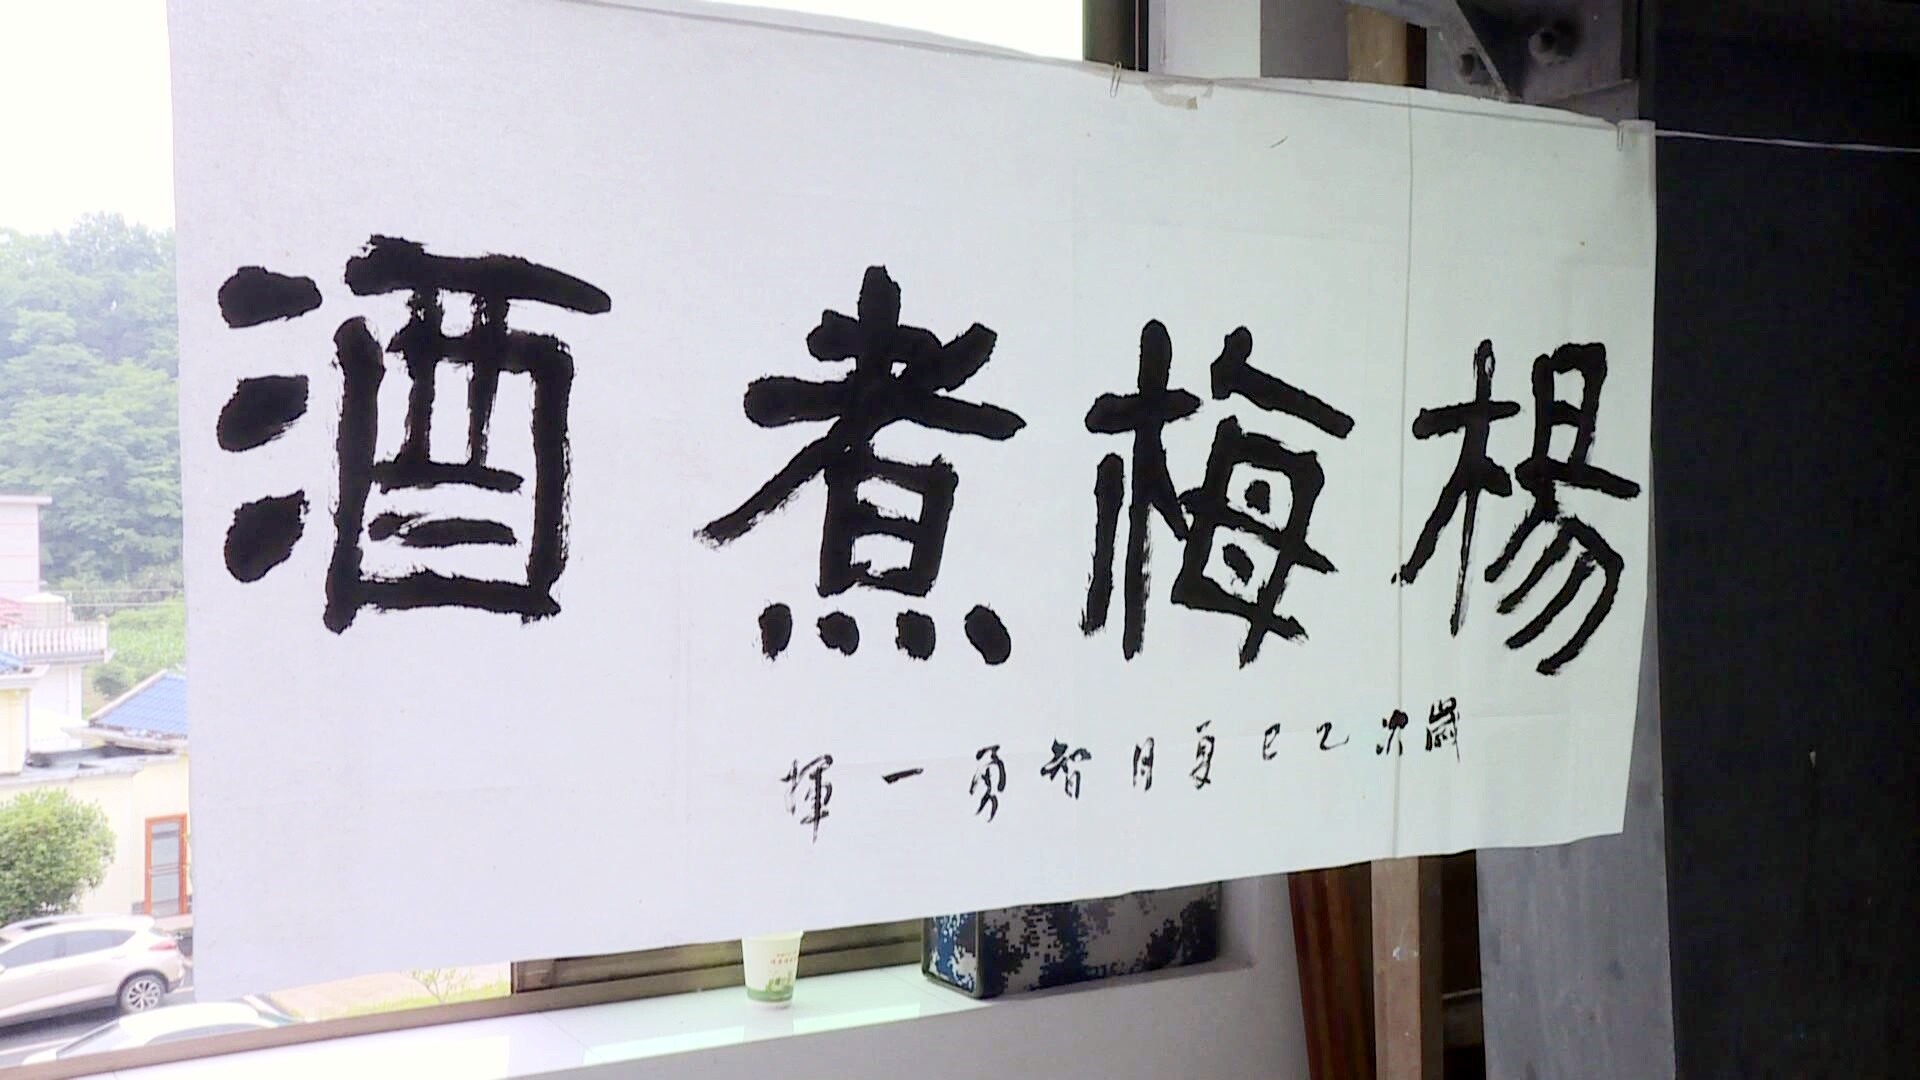 楊梅煮酒
歲次乙巳夏月智勇一揮